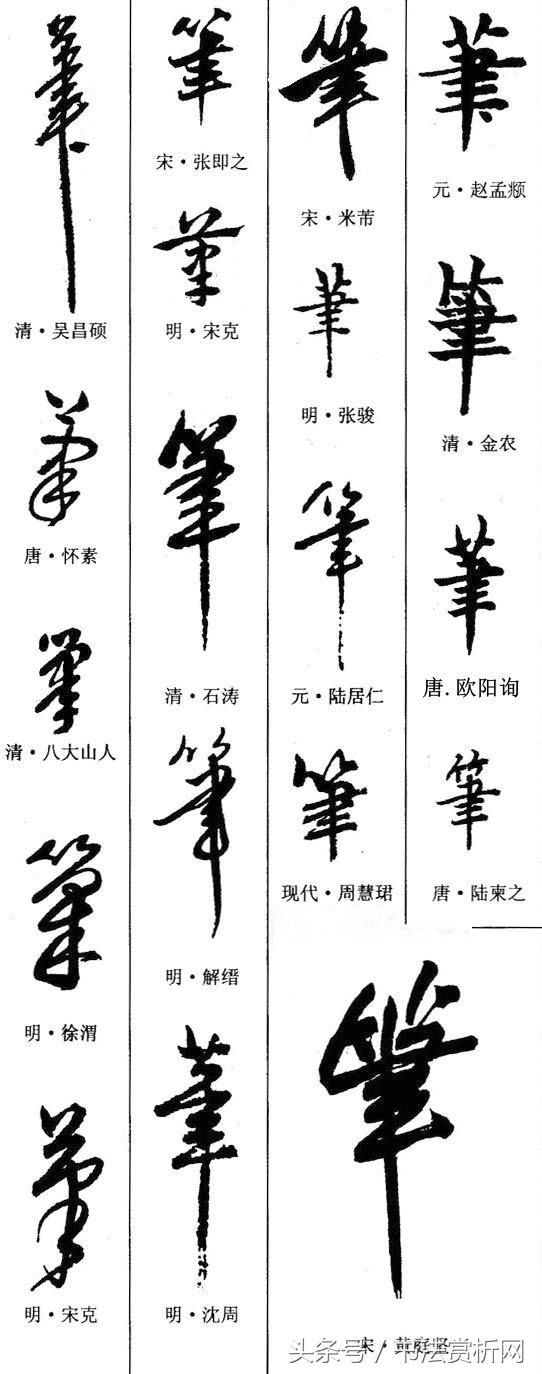 筆
元·赵孟頫
筆
清·金农
筆
唐.欧阳询
筆
唐·陆柬之
筆
宋·米芾
筆
明·张骏
筆
元·陆居仁
筆
现代·周慧珺
筆
宋·黄庭坚
筆
宋·张即之
筆
明·宋克
筆
清·石涛
筆
明·解缙
筆
明·沈周
筆
清·吴昌硕
筆
唐·怀素
筆
清·八大山人
筆
明·徐渭
筆
明·宋克
头条号 / 书法赏析网